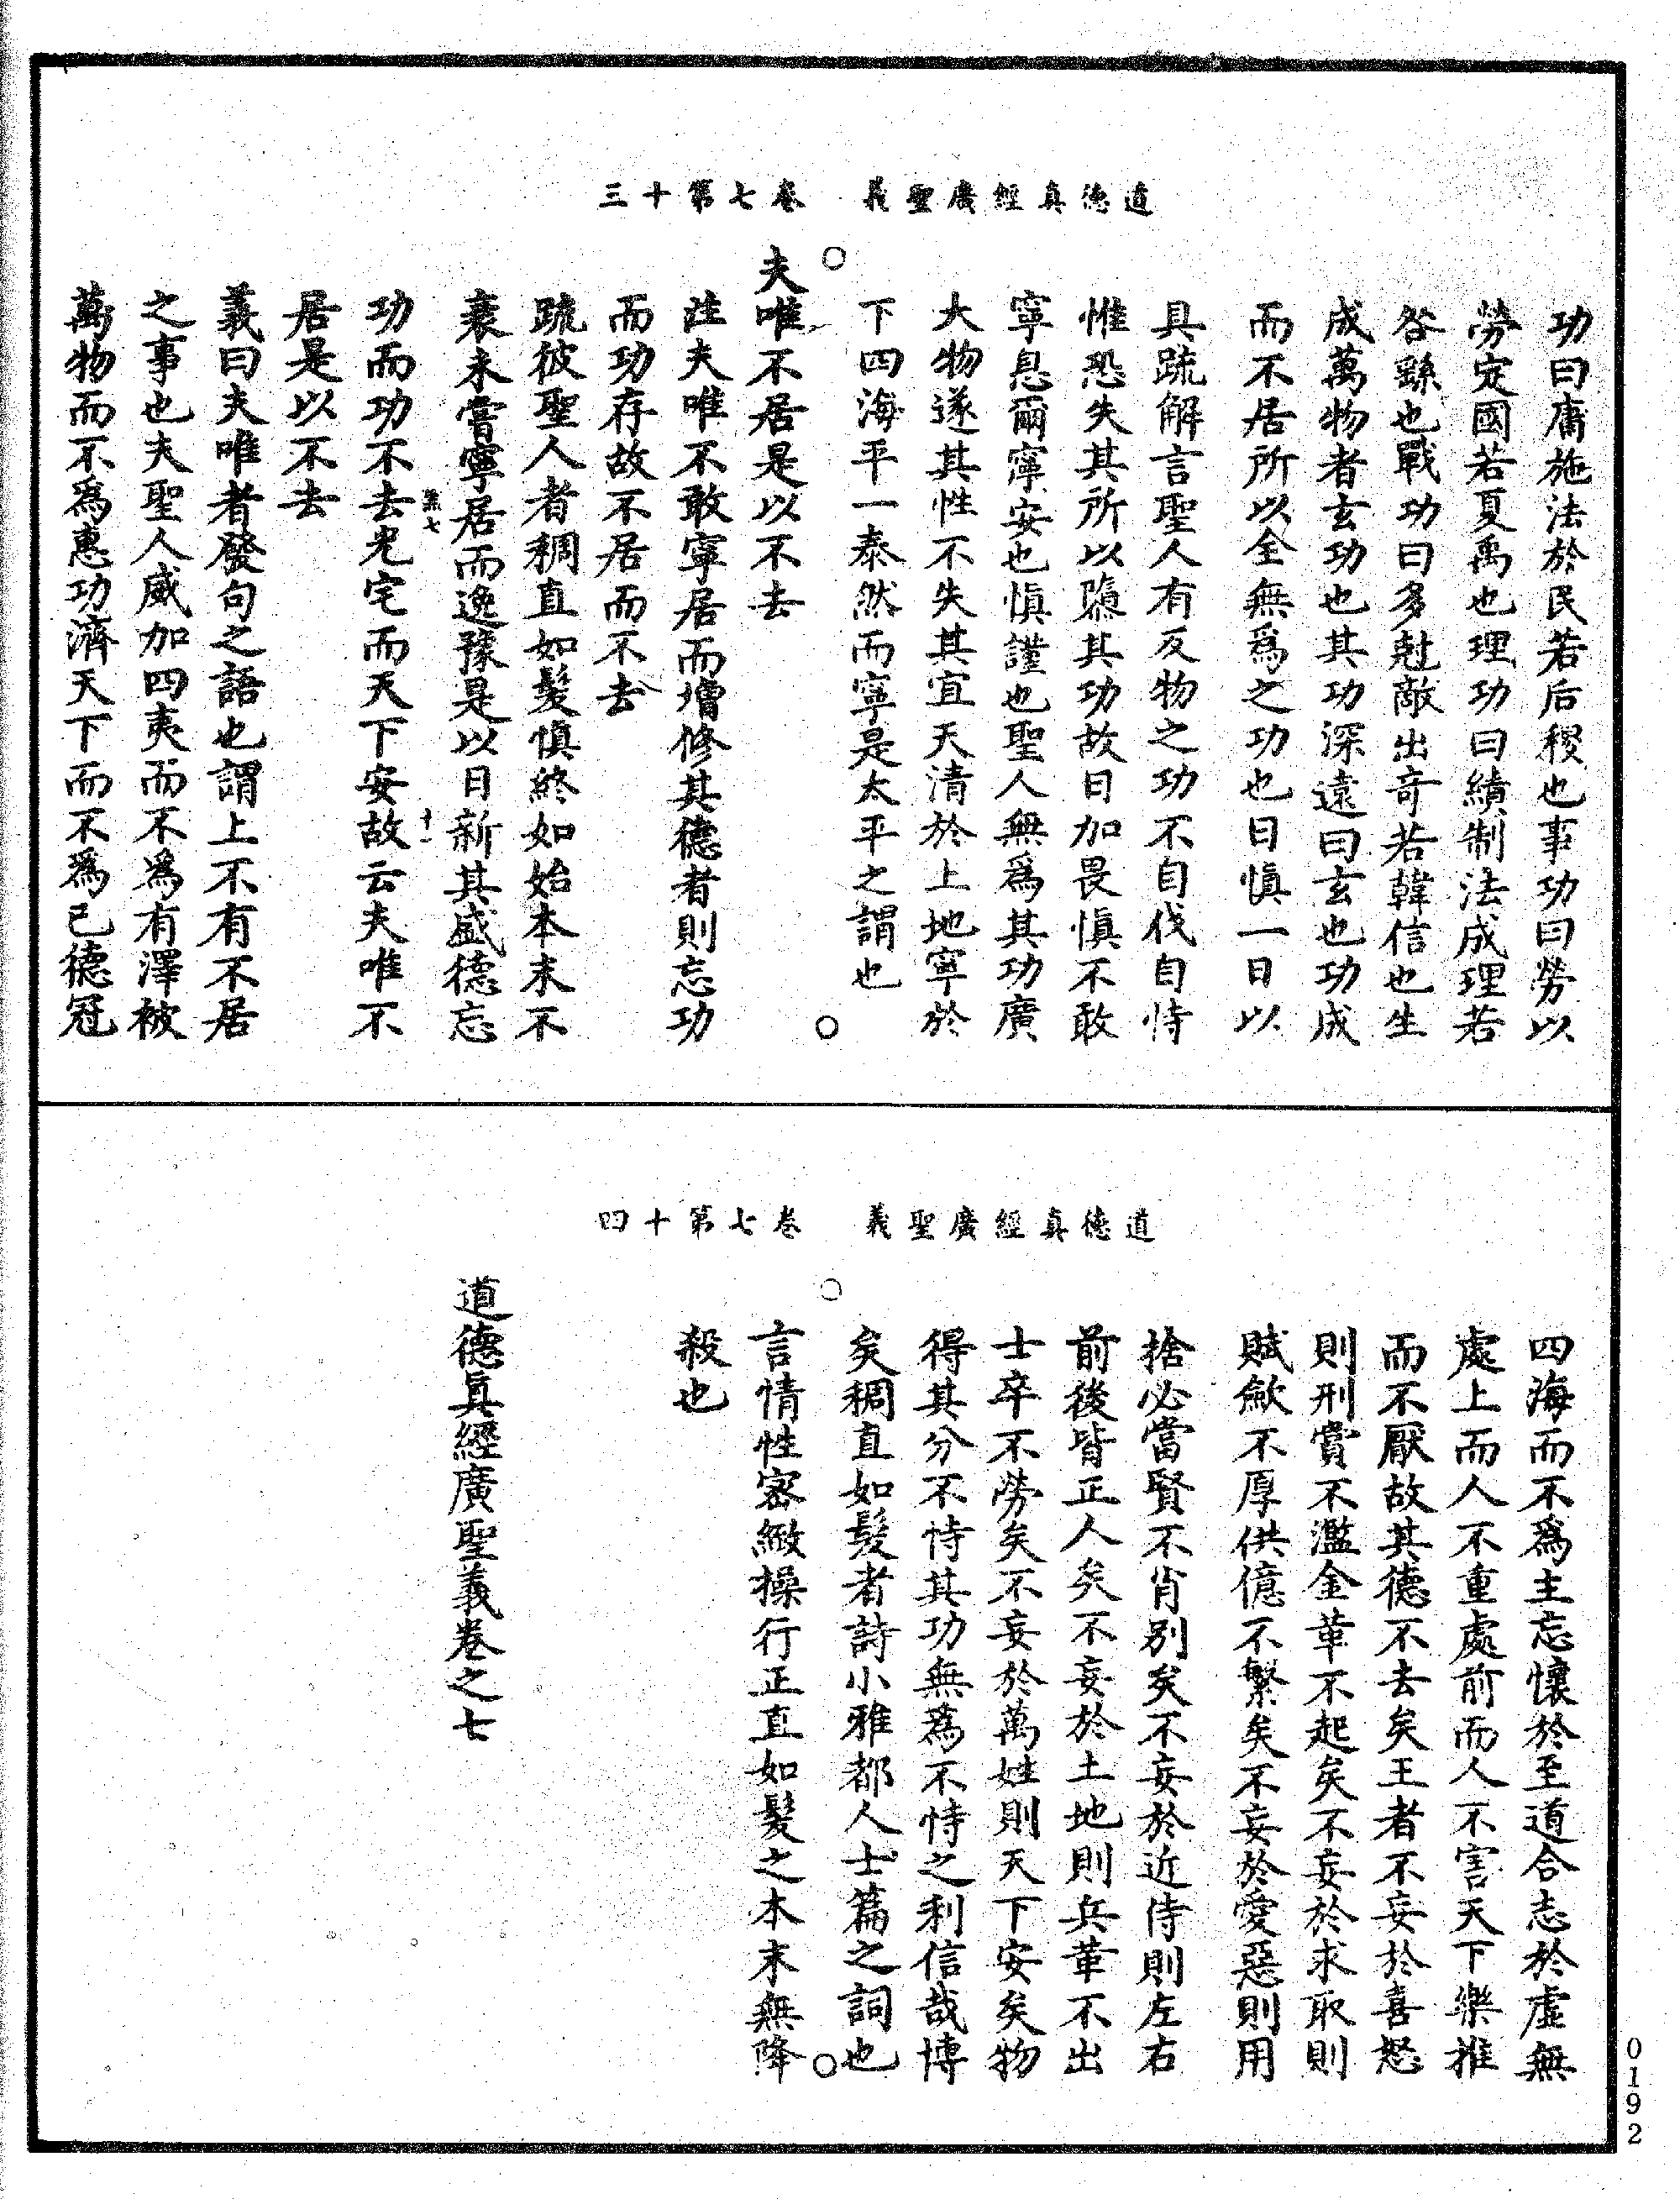 道德真經廣聖義　卷七第十三
功曰庸施法於民若后稷也事功曰勞以
勞定國若夏禹也理功曰績制法成理若
咎繇也戰功曰多尅敵出奇若韓信也生
成萬物者玄功也其功深遠曰玄也功成
而不居所以全無爲之功也日慎一日以
具疏解言聖人有及物之功不自伐自恃
惟恐失其所以隳其功故日加畏慎不敢
寧息爾寧安也慎謹也聖人無爲其功廣
大物遂其性不失其宜天清於上地寧於
下四海平一泰然而寧是太平之謂也
夫唯不居是以不去
注夫唯不敢寧居而增修其德者則忘功
而功存故不居而不去
疏彼聖人者稠直如髮慎終如始本末不
衰未嘗寧居而逸豫是以日新其盛德忘
功而功不去光宅而天下安故云夫唯不
居是以不去
義曰夫唯者發句之語也謂上不有不居
之事也夫聖人威加四夷而不爲有澤被
萬物而不爲惠功濟天下而不爲己德冠
道德真經廣聖義　卷七第十四
四海而不爲主忘懷於至道合志於虛無
處上而人不重處前而人不害天下樂推
而不厭故其德不去矣王者不妄於喜怒
則刑賞不濫金革不起矣不妄於求取則
賦歛不厚供億不繁矣不妄於愛惡則用
捨必當賢不肖别矣不妄於近侍則左右
前後皆正人矣不妄於土地則兵革不出
士卒不勞矣不妄於萬姓則天下安矣物
得其分不恃其功無爲不恃之利信哉博
矣稠直如髮者詩小雅都人士篇之詞也
言情性密緻操行正直如髮之本末無降
殺也
道德眞經廣聖義卷之七
0192